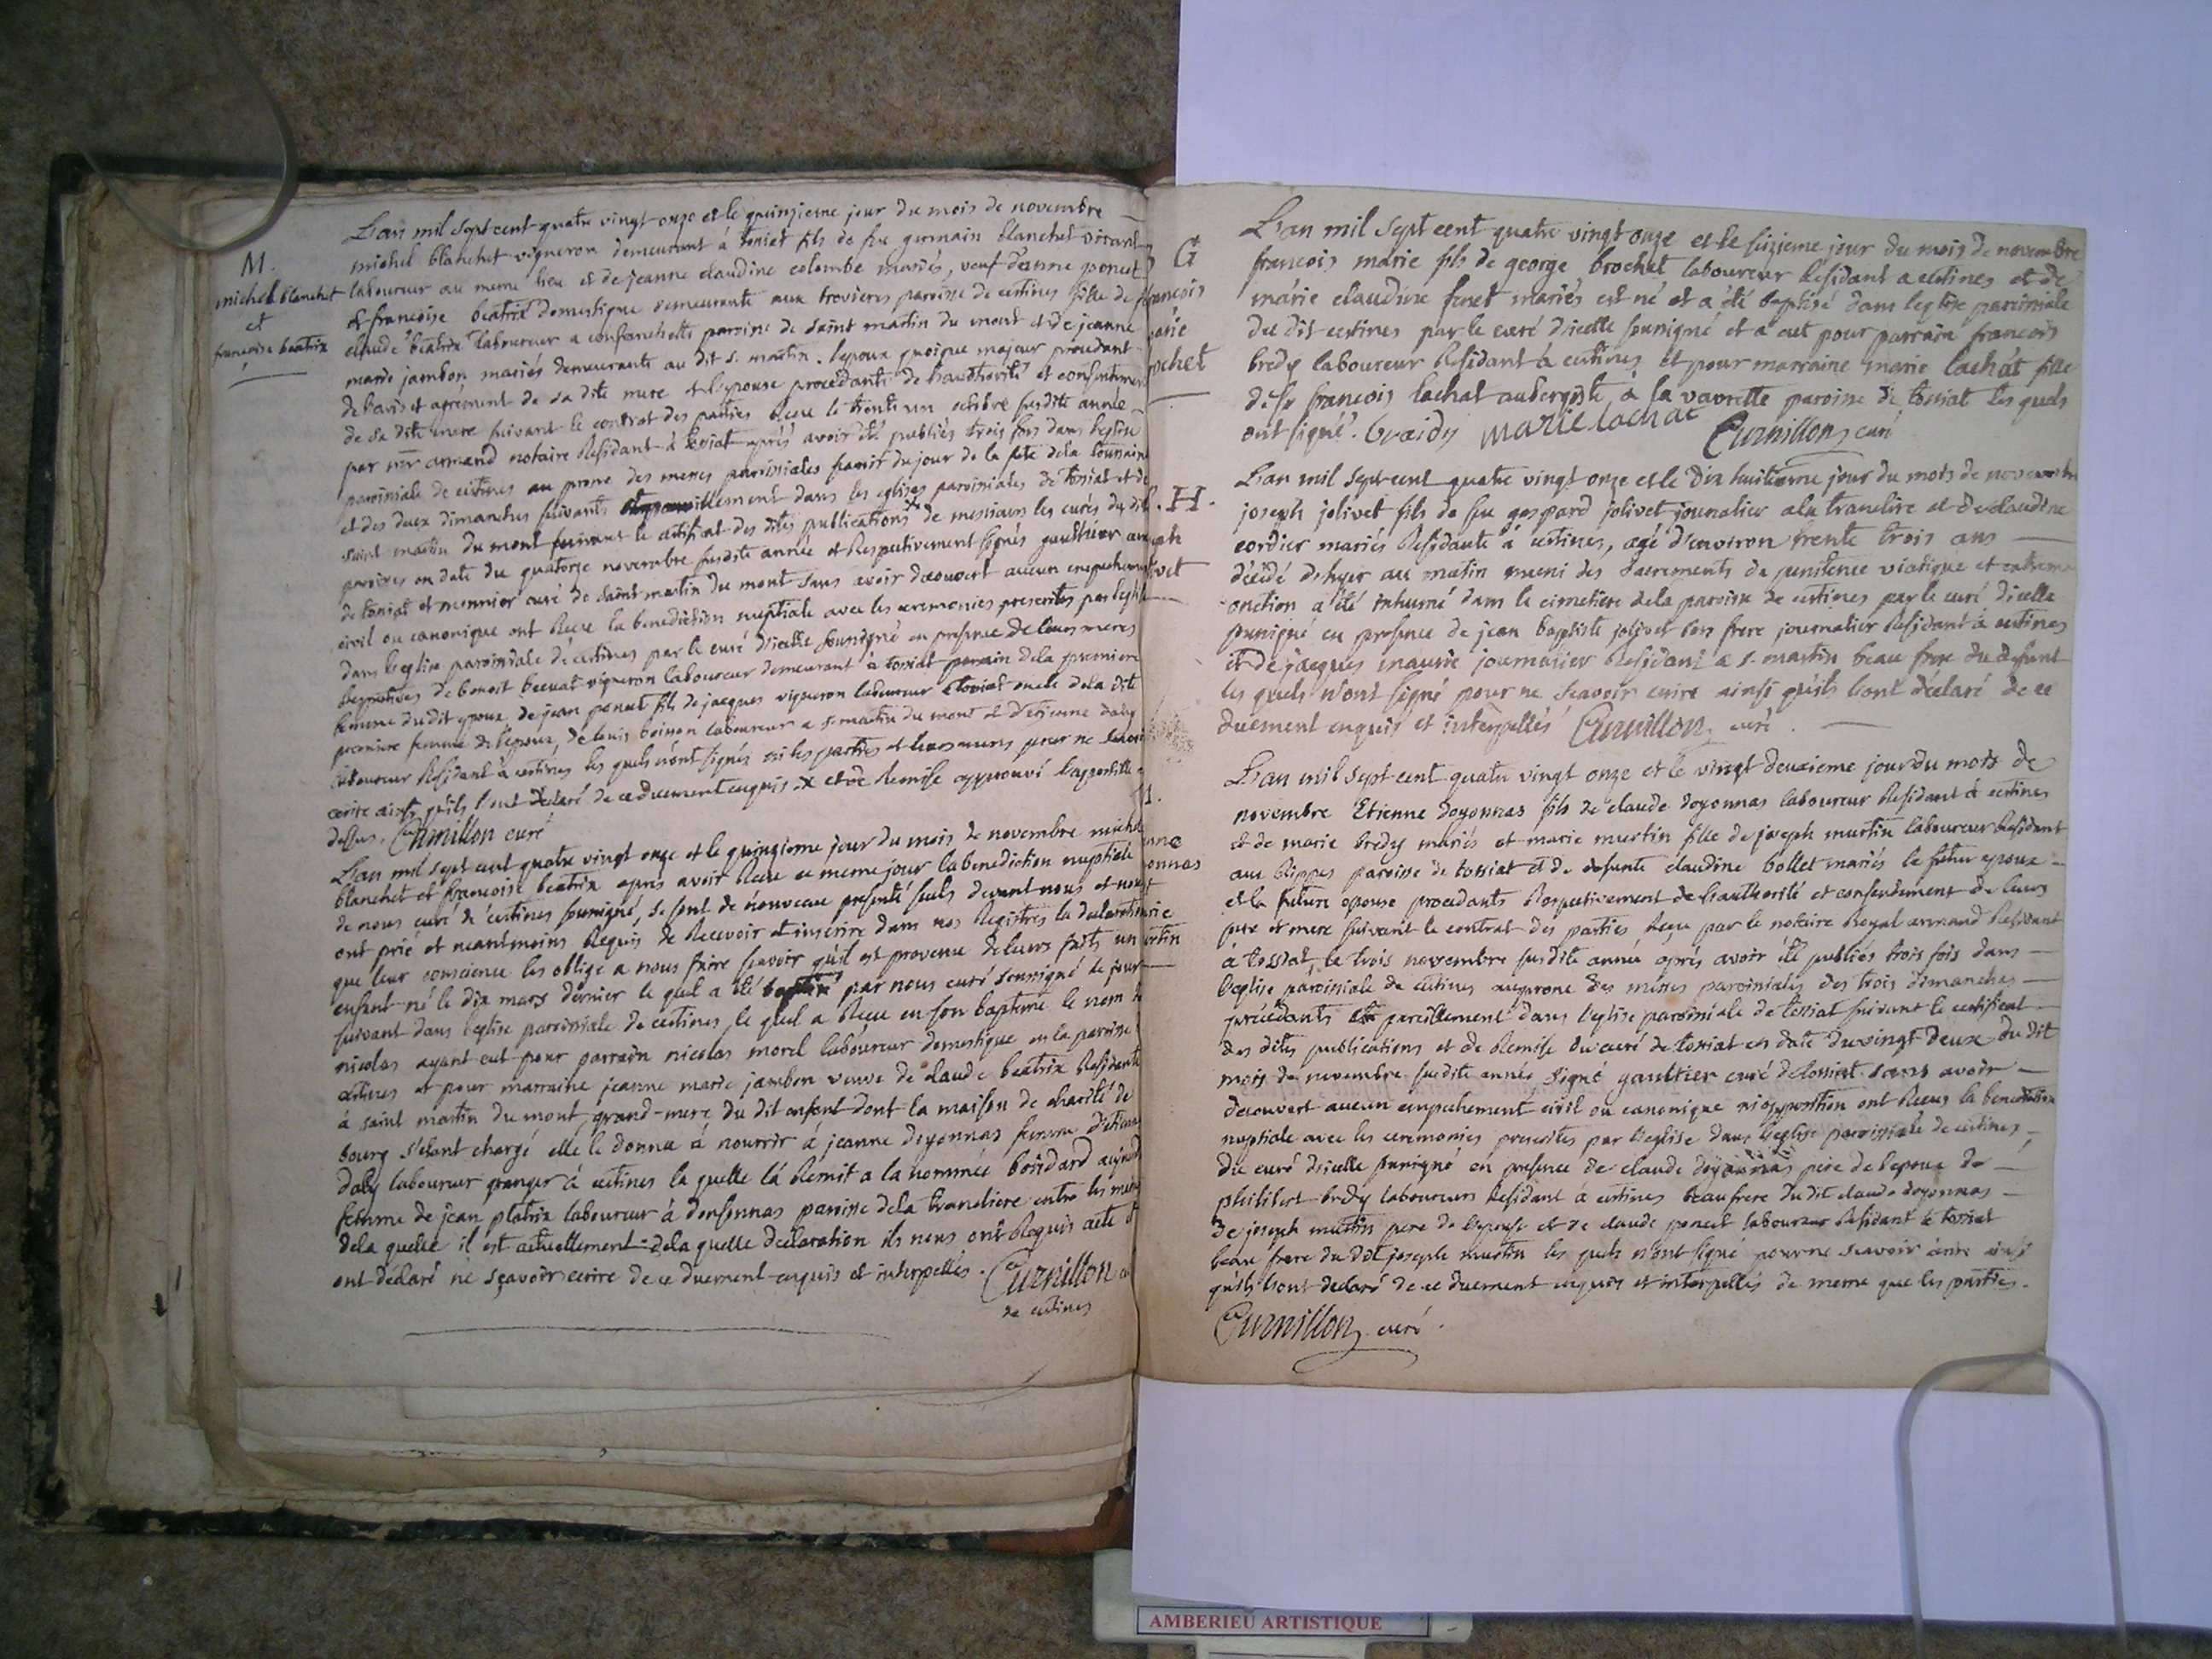 M.
michel blanchet
et
francoise beatrix
L'an mil sept cent quatre vingt onze et le quinzieme jour du mois de novembre
michel blanchet vigneron demeurant à tossiat fils de feu germain blanchet vivant
laboureur au meme lieu et de jeanne claudine colombe mariés, veuf d'anne poncet
et francoise beatrix domestique demeurante aux trovieres paroisse de certines fille de
claude beatrix laboureur a confranchette paroisse de saint martin du mont et de jeanne
marie jambon mariés demeurante au dit s. martin. l'epoux quoique majeur procedant
de l'avis et agrément de sa dite mere et l'epouse procedante de l'authorité et consentement
de sa dite mere suivant le contrat des parties recu le trente un octobre susdite année
par mr armand notaire Residant à tossiat après avoir été publiés trois fois dans l'eglise
paroissiale de certines au prone des messes paroissiales savoir du jour de la fete dela toussaint
et des deux dimanches suivants et pareillement dans les eglises paroissiales de tossiat et de
saint martin du mont suivant le certificat des dites publications de messieurs les curés du dit
paroisses en date du quatorze novembre susdite année et Respectivement signés gaulthier curé
de tossiat et monnier curé de saint martin du mont sans avoir decouvert aucun empechement
civil ou canonique ont Recu la benediction nuptiale avec les ceremonies prescrites par l'eglise
dans l'eglise paroissiale de certines par le curé d'icelle soussigné en presence de leurs meres
Respectives de benoit vigneron laboureur demeurant à tossiat parrain dela premiere
femme du dit epoux, de jean poncet fils de jacques vigneron laboureur a tossiat oncle dela dite
premiere femme de l'epoux, de louis boinon laboureur a s. martin du mont et d'etienne daby
laboureur Residant à certines les quels n'ont signés ni les parties et leurs meres pour ne savoir
ecrire ainsi qu'ils l'ont déclaré de ce duement enquis x et de Remise approuvé l'apostille
dessus. Curnillon curé
L'an mil sept cent quatre vingt onze et le quinzieme jour du mois de novembre michel
blanchet et francoise beatrix après avoir Recu ce meme jour la benediction nuptiale
de nous curé de certines soussigné, se sont de nouveau presenté seuls devant nous et nous
ont prié et neantmoins Requis de Recevoir et inscrire dans nos Registres la declaration
que leur conscience les oblige a nous faire scavoir qu'il est provenu de leurs faits un
enfant né le dix mars dernier le quel a été baptisé par nous curé soussigné le jour
suivant dans l'eglise paroissiale de certines, le quel a Recu en son baptême le nom de
nicolas ayant eut pour parrain nicolas morel laboureur domestique en la paroisse
certines et pour marraine jeanne marie jambon veuve de claude beatrix Residante
à saint martin du mont, grand-mere du dit enfant dont la maison de charité de
bourg s'etant chargé elle le donna à nourrir à jeanne doyonnas femme d'etienne
daby laboureur granger à certines la quelle la Remit a la nommée boisdard
femme de jean platrix laboureur à donsonnas paroisse dela traneliere entre les mains
dela quelle il est actuellement dela quelle declaration ils nous ont Requis acte et
ont déclaré ne sçavoir ecrire de ce duement enquis et interpellés. Curnillon
de certines
G
francois
marie
brochet
L'an mil sept cent quatre vingt onze et le seizieme jour du mois de novembre
francois marie fils de george brochet laboureur Residant a certines et de
marie claudine feret mariés est né et a été baptisé dans l'eglise paroissiale
du dit certines par le curé d'icelle soussigné et a eut pour parrain francois
bredy laboureur Residant à certines et pour marraine marie lachat fille
de feu francois lachat aubergiste à la vavrette paroisse de tossiat les quels
ont signé. braidy marie lachat Curnillon curé
.H.
L'an mil sept cent quatre vingt onze et le dix huitieme jour du mois de novembre
joseph jolivet fils de feu gaspard jolivet journalier a la tranclire et de claudine
cordier mariés Residante à certines, agé d'environ trente trois ans
décédé d'hyer au matin muni des sacrements de penitence viatique et extreme
onction a été inhumé dans le cimetiere dela paroisse de certines par le curé d'icelle
soussigné en presence de jean baptiste jolivet son frere journalier Residant à certines
et de jacques maurie journalier Residant a s. martin beau frere du defunt
les quels n'ont signé pour ne scavoir ecrire ainsi qu'ils l'ont déclaré de ce
duement enquis et interpellés Curnillon curé.
M.
L'an mil sept cent quatre vingt onze et le vingt deuxieme jour du mois de
novembre Etienne doyonnas fils de claude doyonnas laboureur Residant à certines
et de marie bredy mariés et marie murtin fille de joseph murtin laboureur Residant
aux Rippes paroisse de tossiat et de defunte claudine bollet mariés le futur epoux
et la future epouse procedants Respectivement de l'authorité et consentement de leurs
pere et mere suivant le contrat des parties Recu par le notaire Royal armand Residant
à tossiat, le trois novembre susdite année après avoir été publiés trois fois dans
l'eglise paroissiale de certines au prone des messes paroissiales des trois dimanches
precedants et pareillement dans l'eglise paroissiale de tossiat suivant le certificat
des dites publications et de Remise du curé de tossiat en date du vingt deux du dit
mois de novembre susdite année signé gaultier curé de tossiat sans avoir
decouvert aucun empechement civil ou canonique ni opposition ont Recus la benediction
nuptiale avec les ceremonies prescrites par l'eglise dans l'eglise paroissiale de certines,
du curé d'icelle soussigné en presence de claude doyonnas pere de l'epoux de
philibert bredy laboureurs Residant à certines beaufrere du dit claude doyonnas
de joseph murtin pere de l'epouse et de claude poncet laboureur Residant à tossiat
beau frere du dit joseph murtin les quels n'ont signé pour ne scavoir ecrire ainsi
qu'ils l'ont declaré de ce duement enquis et interpellés de meme que les parties.
Curnillon curé.
AMBERIEU ARTISTIQUE